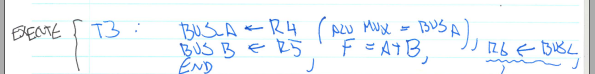 EXECUTE { T3 : BUS A ← R4 (ALU MUX = BUS A),
BUS B ← R5, F = A+B, R6 ← BUS C,
END